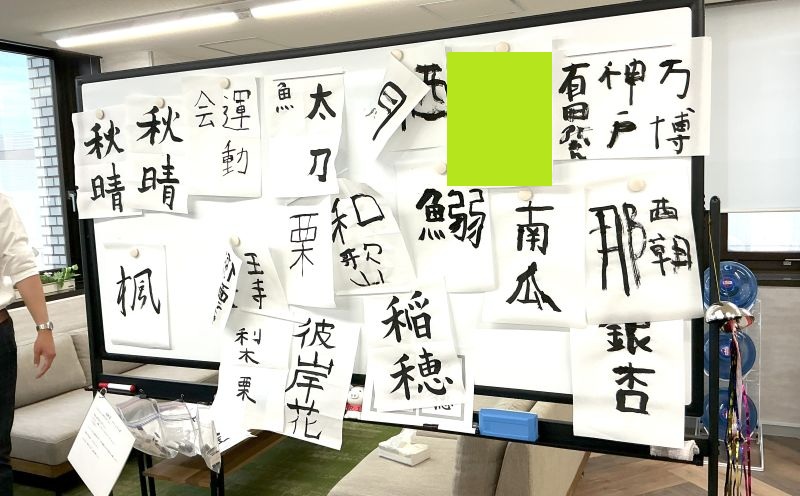 秋晴
秋晴
運動
会
太刀
魚
月
万博
神戸
西朝
那
栗
和歌
鰯
南瓜
楓
王寺
栗
彼岸花
稲穂
銀杏